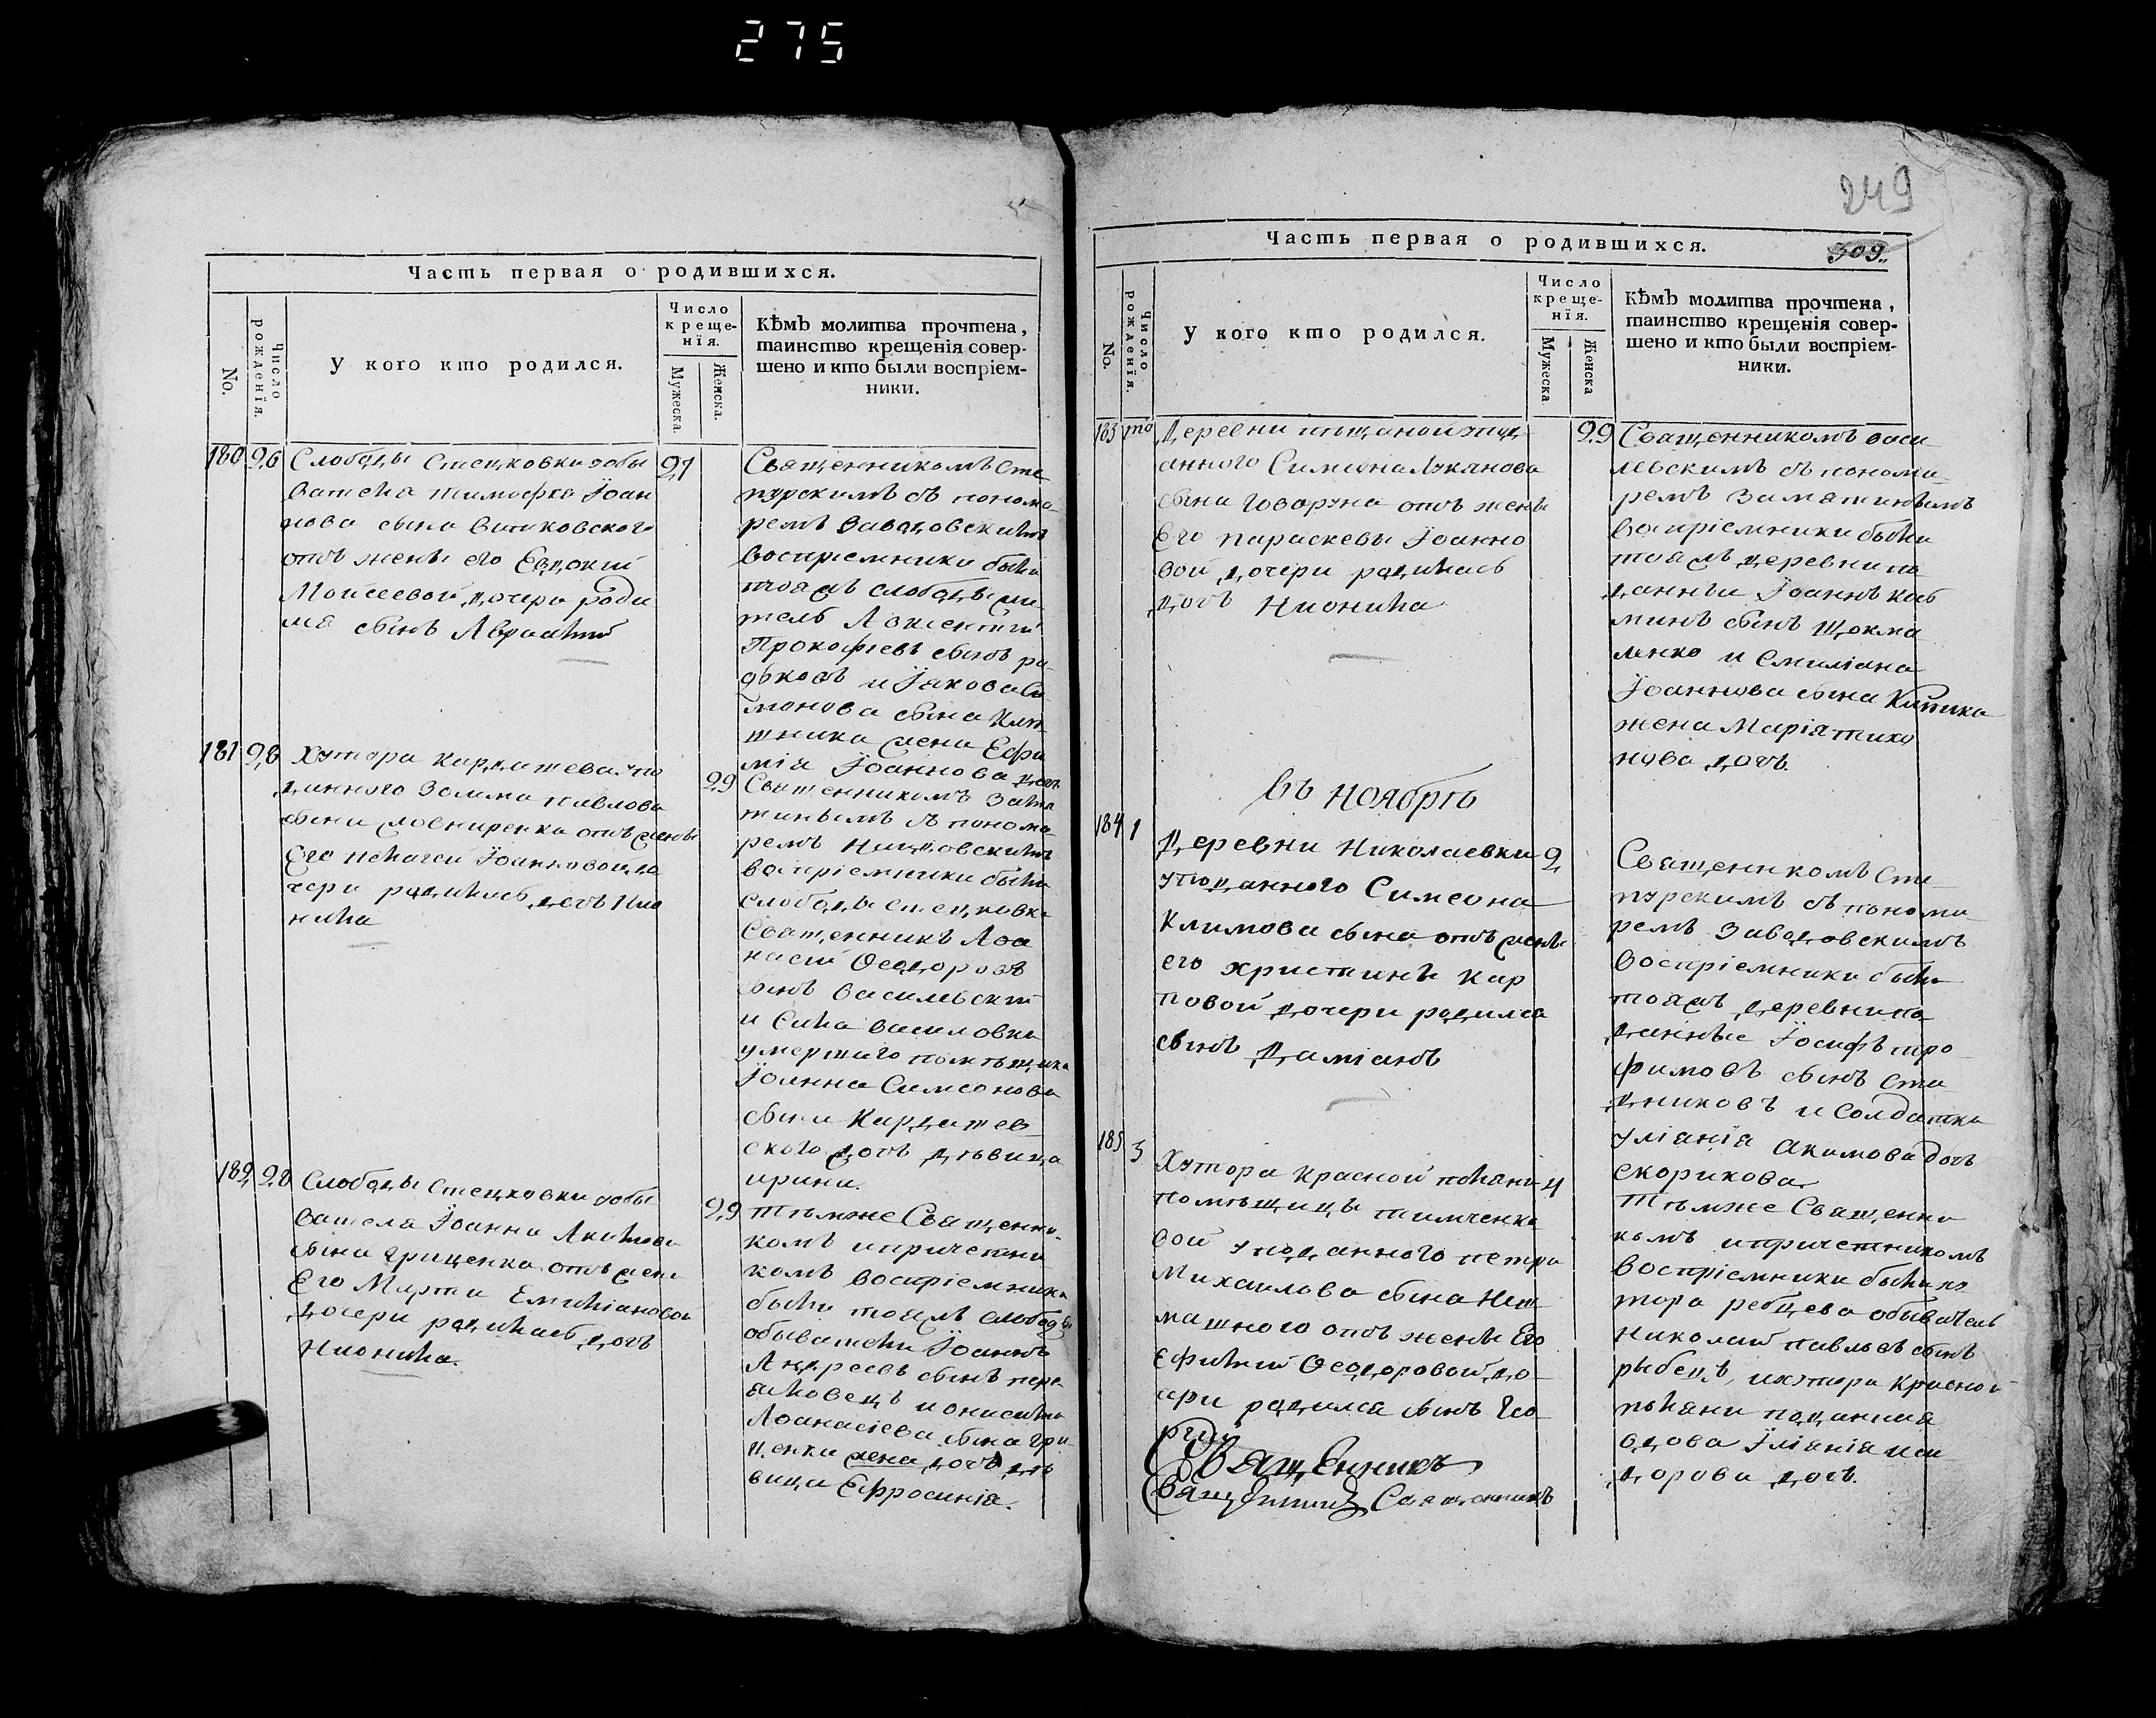 275
Часть первая о родившихся.
No.
Число рожденїя.
У кого кто родился.
Число крещенїя.
Мужеска.
Женска.
Кѣмъ молитва прочтена,
таинство крещенїя совер-
шено и кто были воспрїем-
ники.
180 26 Слободы Стецковки обы
вателя Тимофея Їоан
нова сына Витковского
отъ жены его Евдокїи
Моисеевой дочери роди
ля сынъ Авраамїй
27
Священникомъ Сте
пурскимъ съ понома
ремъ Завадовскимъ
воспрїемники были
тояжъ слободы жи
тель Авксентїй
Прокофїевъ сынъ ра
дковъ и Їакова Си
монова сына
жена Ефи
мїя Їоаннова дочь
181 28 Хутора Кардашева по
данного Зосима Павлова
сына отъ жены
Его Пелагеи Їоанновой до
чери родилась дочь Нио
нила
29
Священникомъ Замя
тинымъ съ понома
ремъ
воспрїемники были
слободы Стецковки
Священникъ Афа
насїй Феодоровъ
сынъ Василевскїй
и Села Василовки
умершаго помѣщика
Їоанна Симеонова
сына Кардашев
ского дочь дѣвица
ирина.
182 28 Слободы Стецковки обы
вателя Їоанна Акимова
сына Гриценка отъ жены
Его Марфы Емилїановой
дочери родилась дочь
Нионила.
29
Тѣмже Священни-
комъ и причетни
комъ воспрїемники
были тояжъ слободы
обыватели Їоаннъ
Андреевъ сынъ пере
и онисима
Афанасїева сына Гри-
ценка дочь дѣ
вица Ефросинїя.
249
309
Часть первая о родившихся.
No.
Число рожденїя.
У кого кто родился.
Число крещенїя.
Мужеска
Женска
Кѣмъ молитва прочтена,
таинство крещенїя совер-
шено и кто были воспрїем-
ники.
183 Деревни пѣщаной под
анного Симеона Лукянова
сына Говоруна отъ жены
Его параскевы Їоанно
вой дочери родилась
дочь Нионила
29
Священникомъ Васи
левскимъ съ понома
ремъ Замятинымъ
воспрїемники были
тояжъ деревни по
данныи Їоаннъ Коз
минъ сынъ
ленко и Емилїана
Їоаннова сына
жена Марїя Тихо
нова дочь.
въ ноябрѣ
184 1 Деревни Николаевки
данного Симеона
Климова сына отъ жены
его христины Кар
повой дочери родился
сынъ Дамїанъ
2
Священикомъ Сте
пурскимъ съ понома
ремъ Завадовскимъ
воспрїемники были
тояжъ деревни по
данные Їосифъ Тро
фимовъ сынъ Ста
дниковъ и солдатка
улїанїя Акимова дочь
скорикова
185 3 Хутора Красной поляни
помѣщицы Тимченко
вой поданного петра
Михаилова сына Неш
машного отъ жены Его
Ефимїи Феодоровой до
чери родился сынъ Гео
ргїй
4
Тѣмже Священни
комъ и причетникомъ
воспрїемники были ху
тора обыватель
николай павловъ сынъ
рибецъ, и хутора Красной
поляни поданная
вдова Їулїанїя иси
дорова дочь.
Священникъ
Священникъ Священникъ